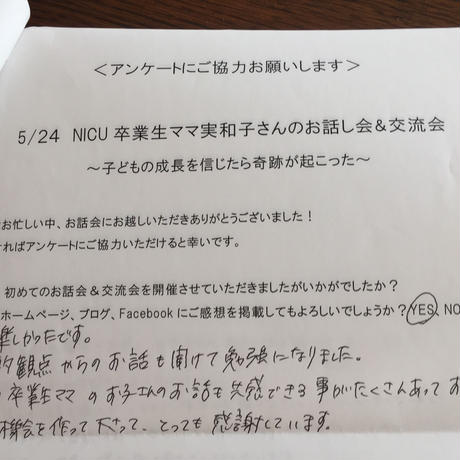 ＜アンケートにご協力お願いします＞
5/24 NICU 卒業生ママ実和子さんのお話し会＆交流会
～子どもの成長を信じたら奇跡が起こった～
お忙しい中、お話会にお越しいただきありがとうございました！
ればアンケートにご協力いただけると幸いです。
初めてのお話会＆交流会を開催させていただきましたがいかがでしたか？
ホームページ、ブログ、Facebook にご感想を掲載してもよろしいでしょうか？ YES, NO
楽しかったです。
観点からのお話も聞けて勉強になりました。
卒業生ママのお子さんのお話も共感できる事がたくさんあってお
機会を作って下さって、とっても感謝しています。